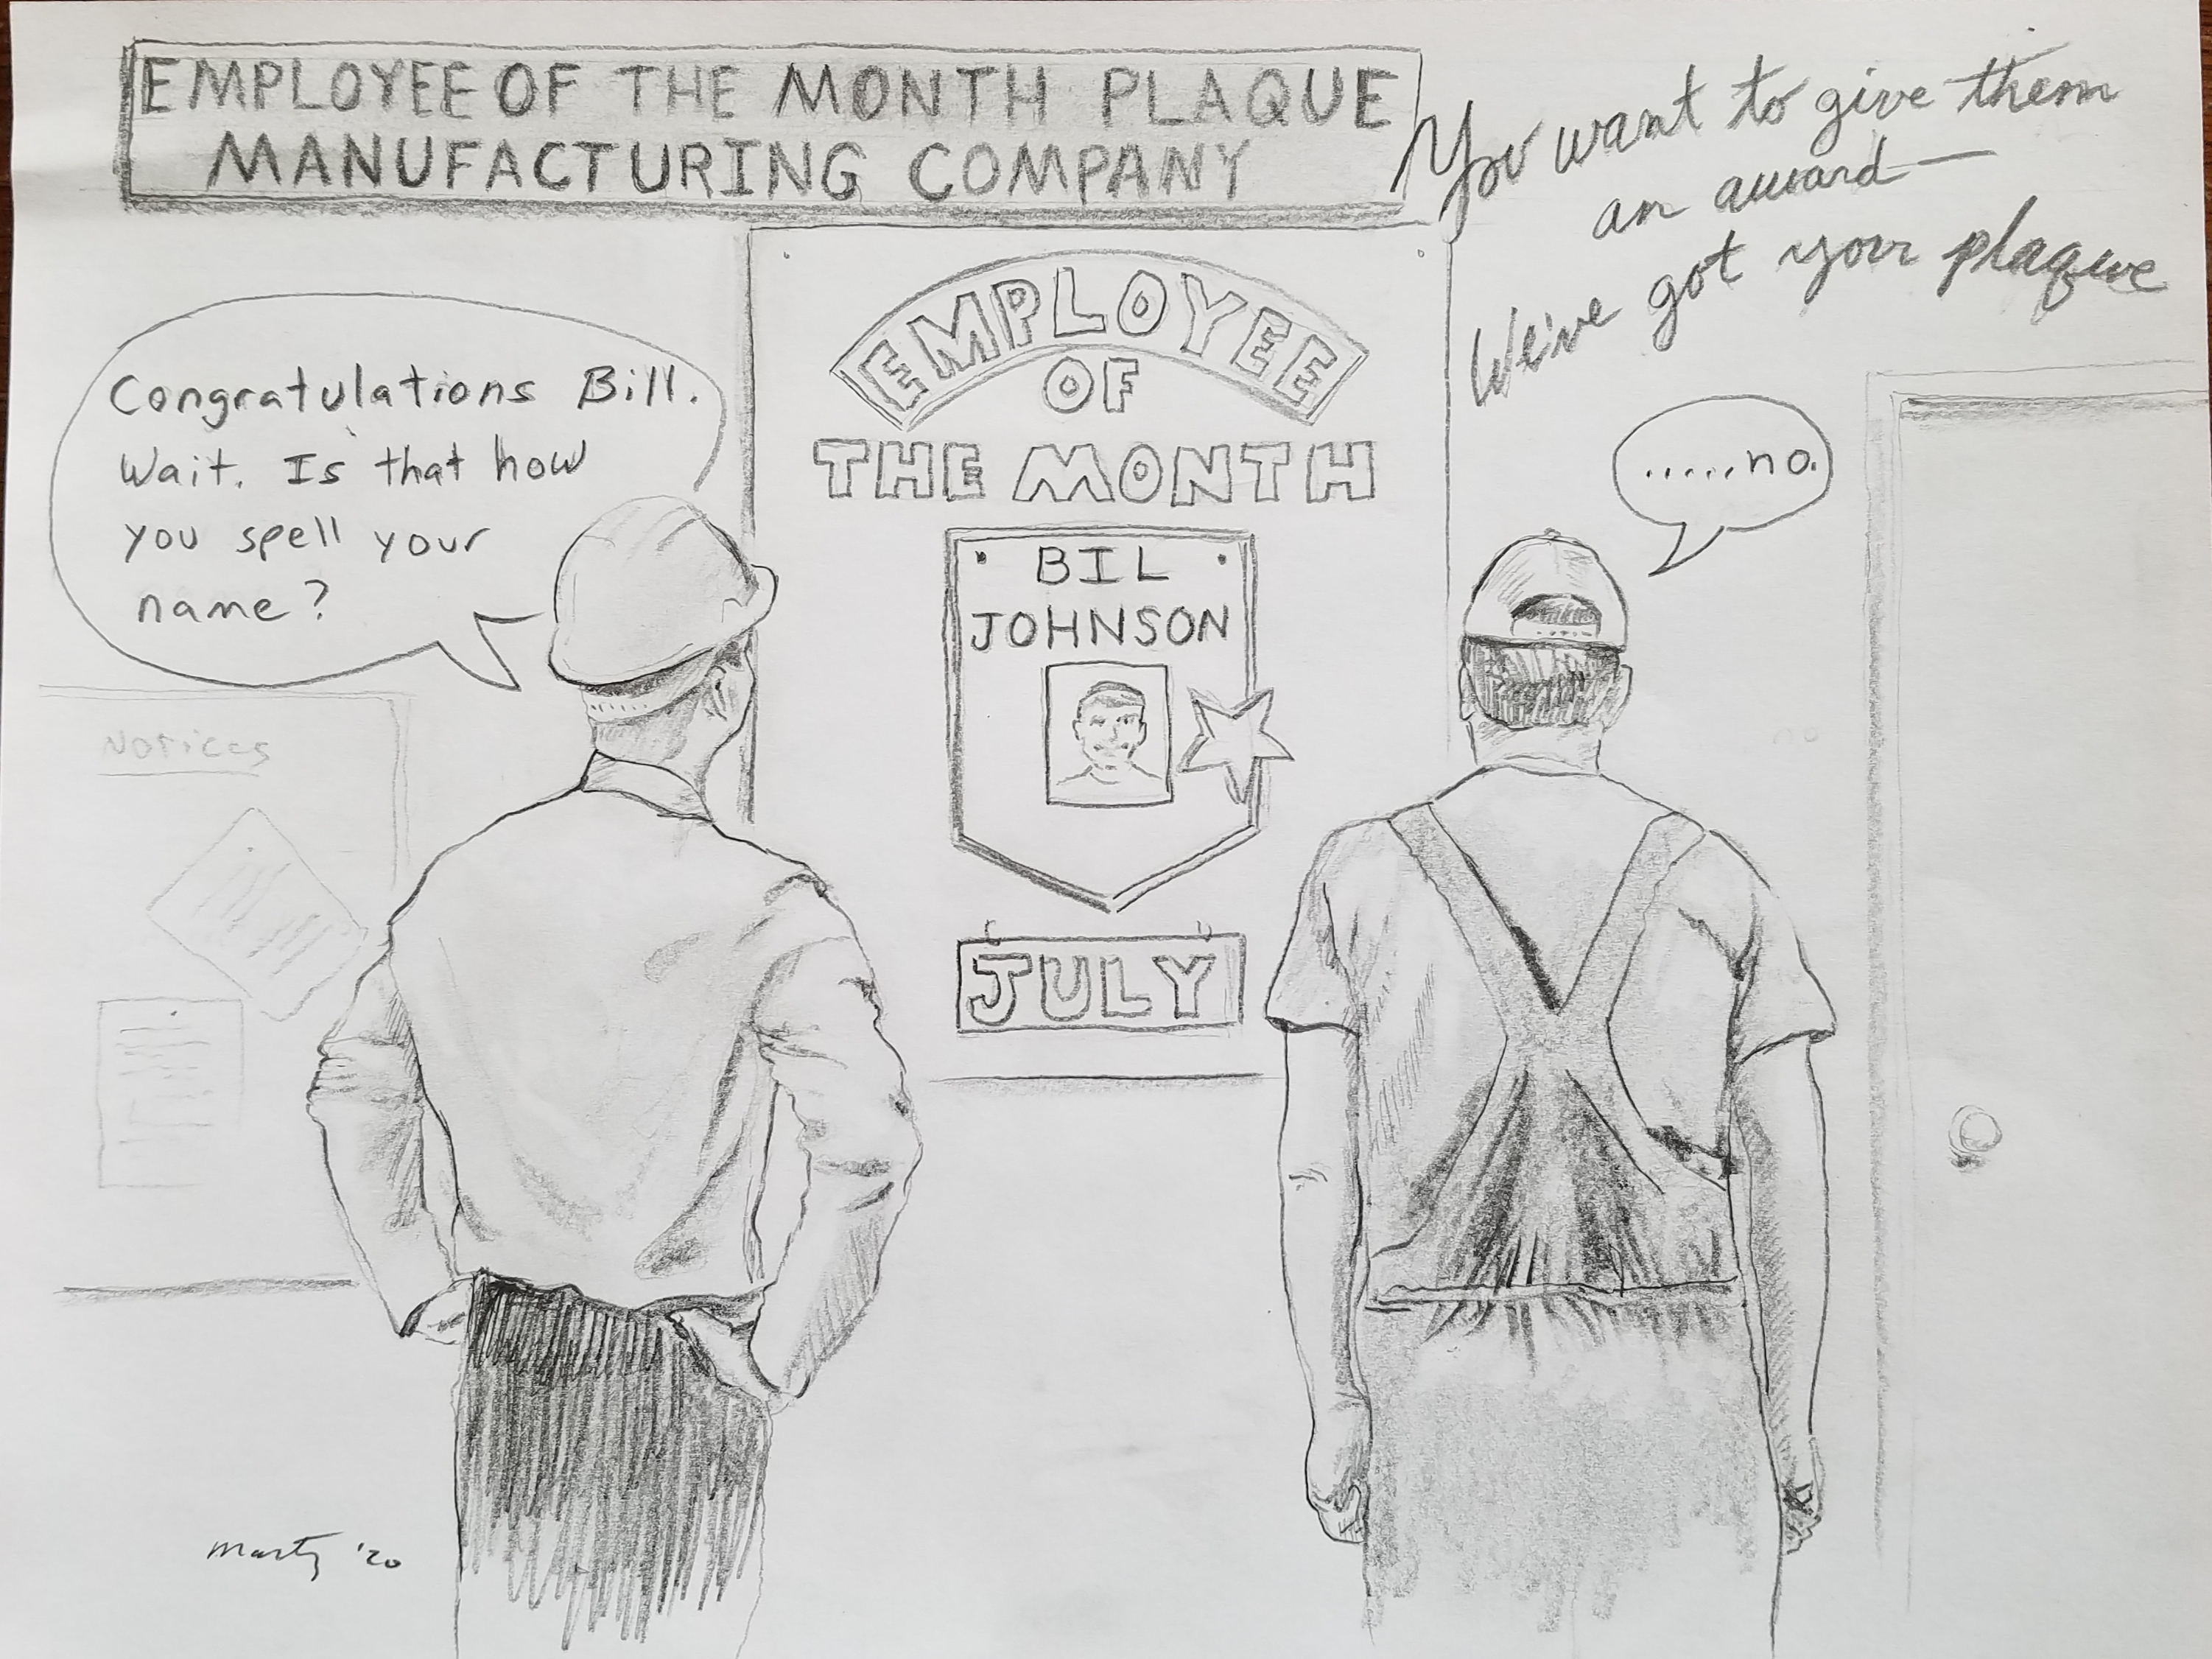 EMPLOYEE OF THE MONTH PLAQUE
MANUFACTURING COMPANY
You want to give them
an award—
We've got your plaque
Congratulations Bill.
Wait. Is that how
you spell your
name?
EMPLOYEE
OF
THE MONTH
BIL
JOHNSON
JULY
.....no.
Notices
no
Marty '20